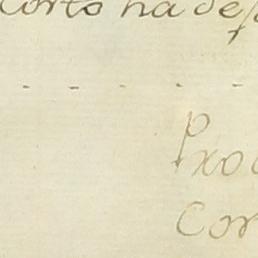 corto ha de
Pro
Cor